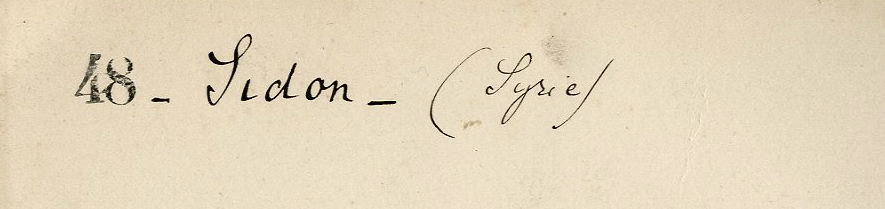 48 - Sidon - (Syrie)